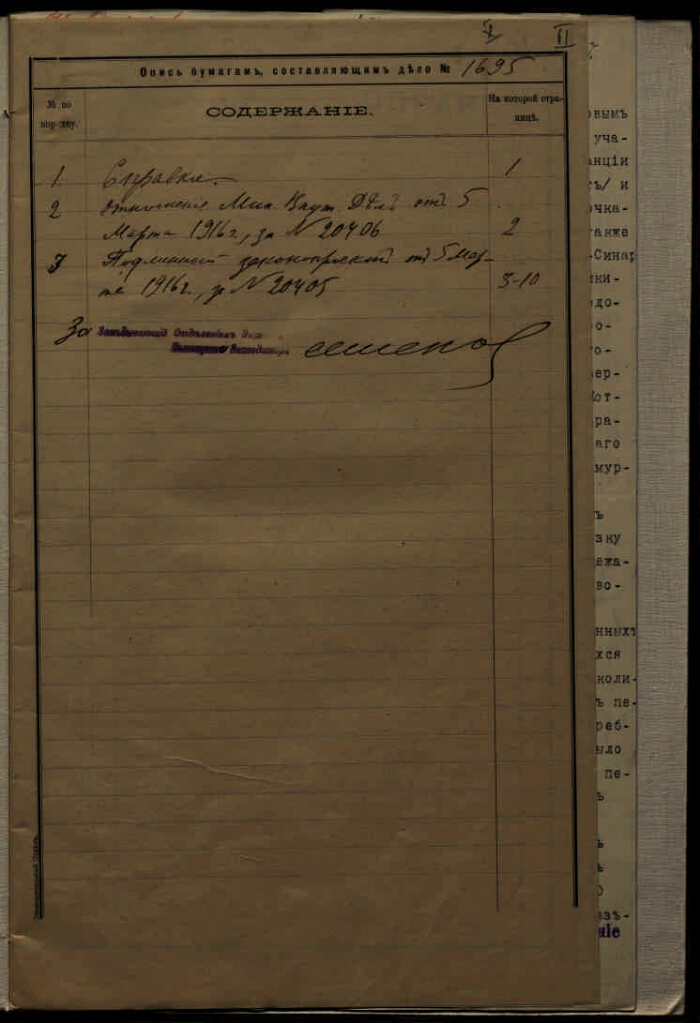 II
Опись бумагамъ, составляющимъ дѣло № 1695
№ по порядку.
СОДЕРЖАНІЕ.
На которой страницѣ.
1 Справка. 1
2 Отношеніе Мин. Внут. Дѣлъ отъ 5
Марта 1916 г., за № 20406 2
3 Подлинный законопроектъ отъ 5 Мар-
та 1916 г., за № 20405 3-10
За Завѣдывающій Отдѣленіемъ
Семенов
овымъ
уча-
анціи
ъ/ и
очка-
также
-Синар
ики-
едо-
о-
го-
ер-
Кот-
ра-
аго
мур-
ъ
зку
ежа-
во-
нныхъ
хся
коли-
ъ пе-
реб-
ыло
пе-
ъ
ъ
ъ
азъ-
ніе